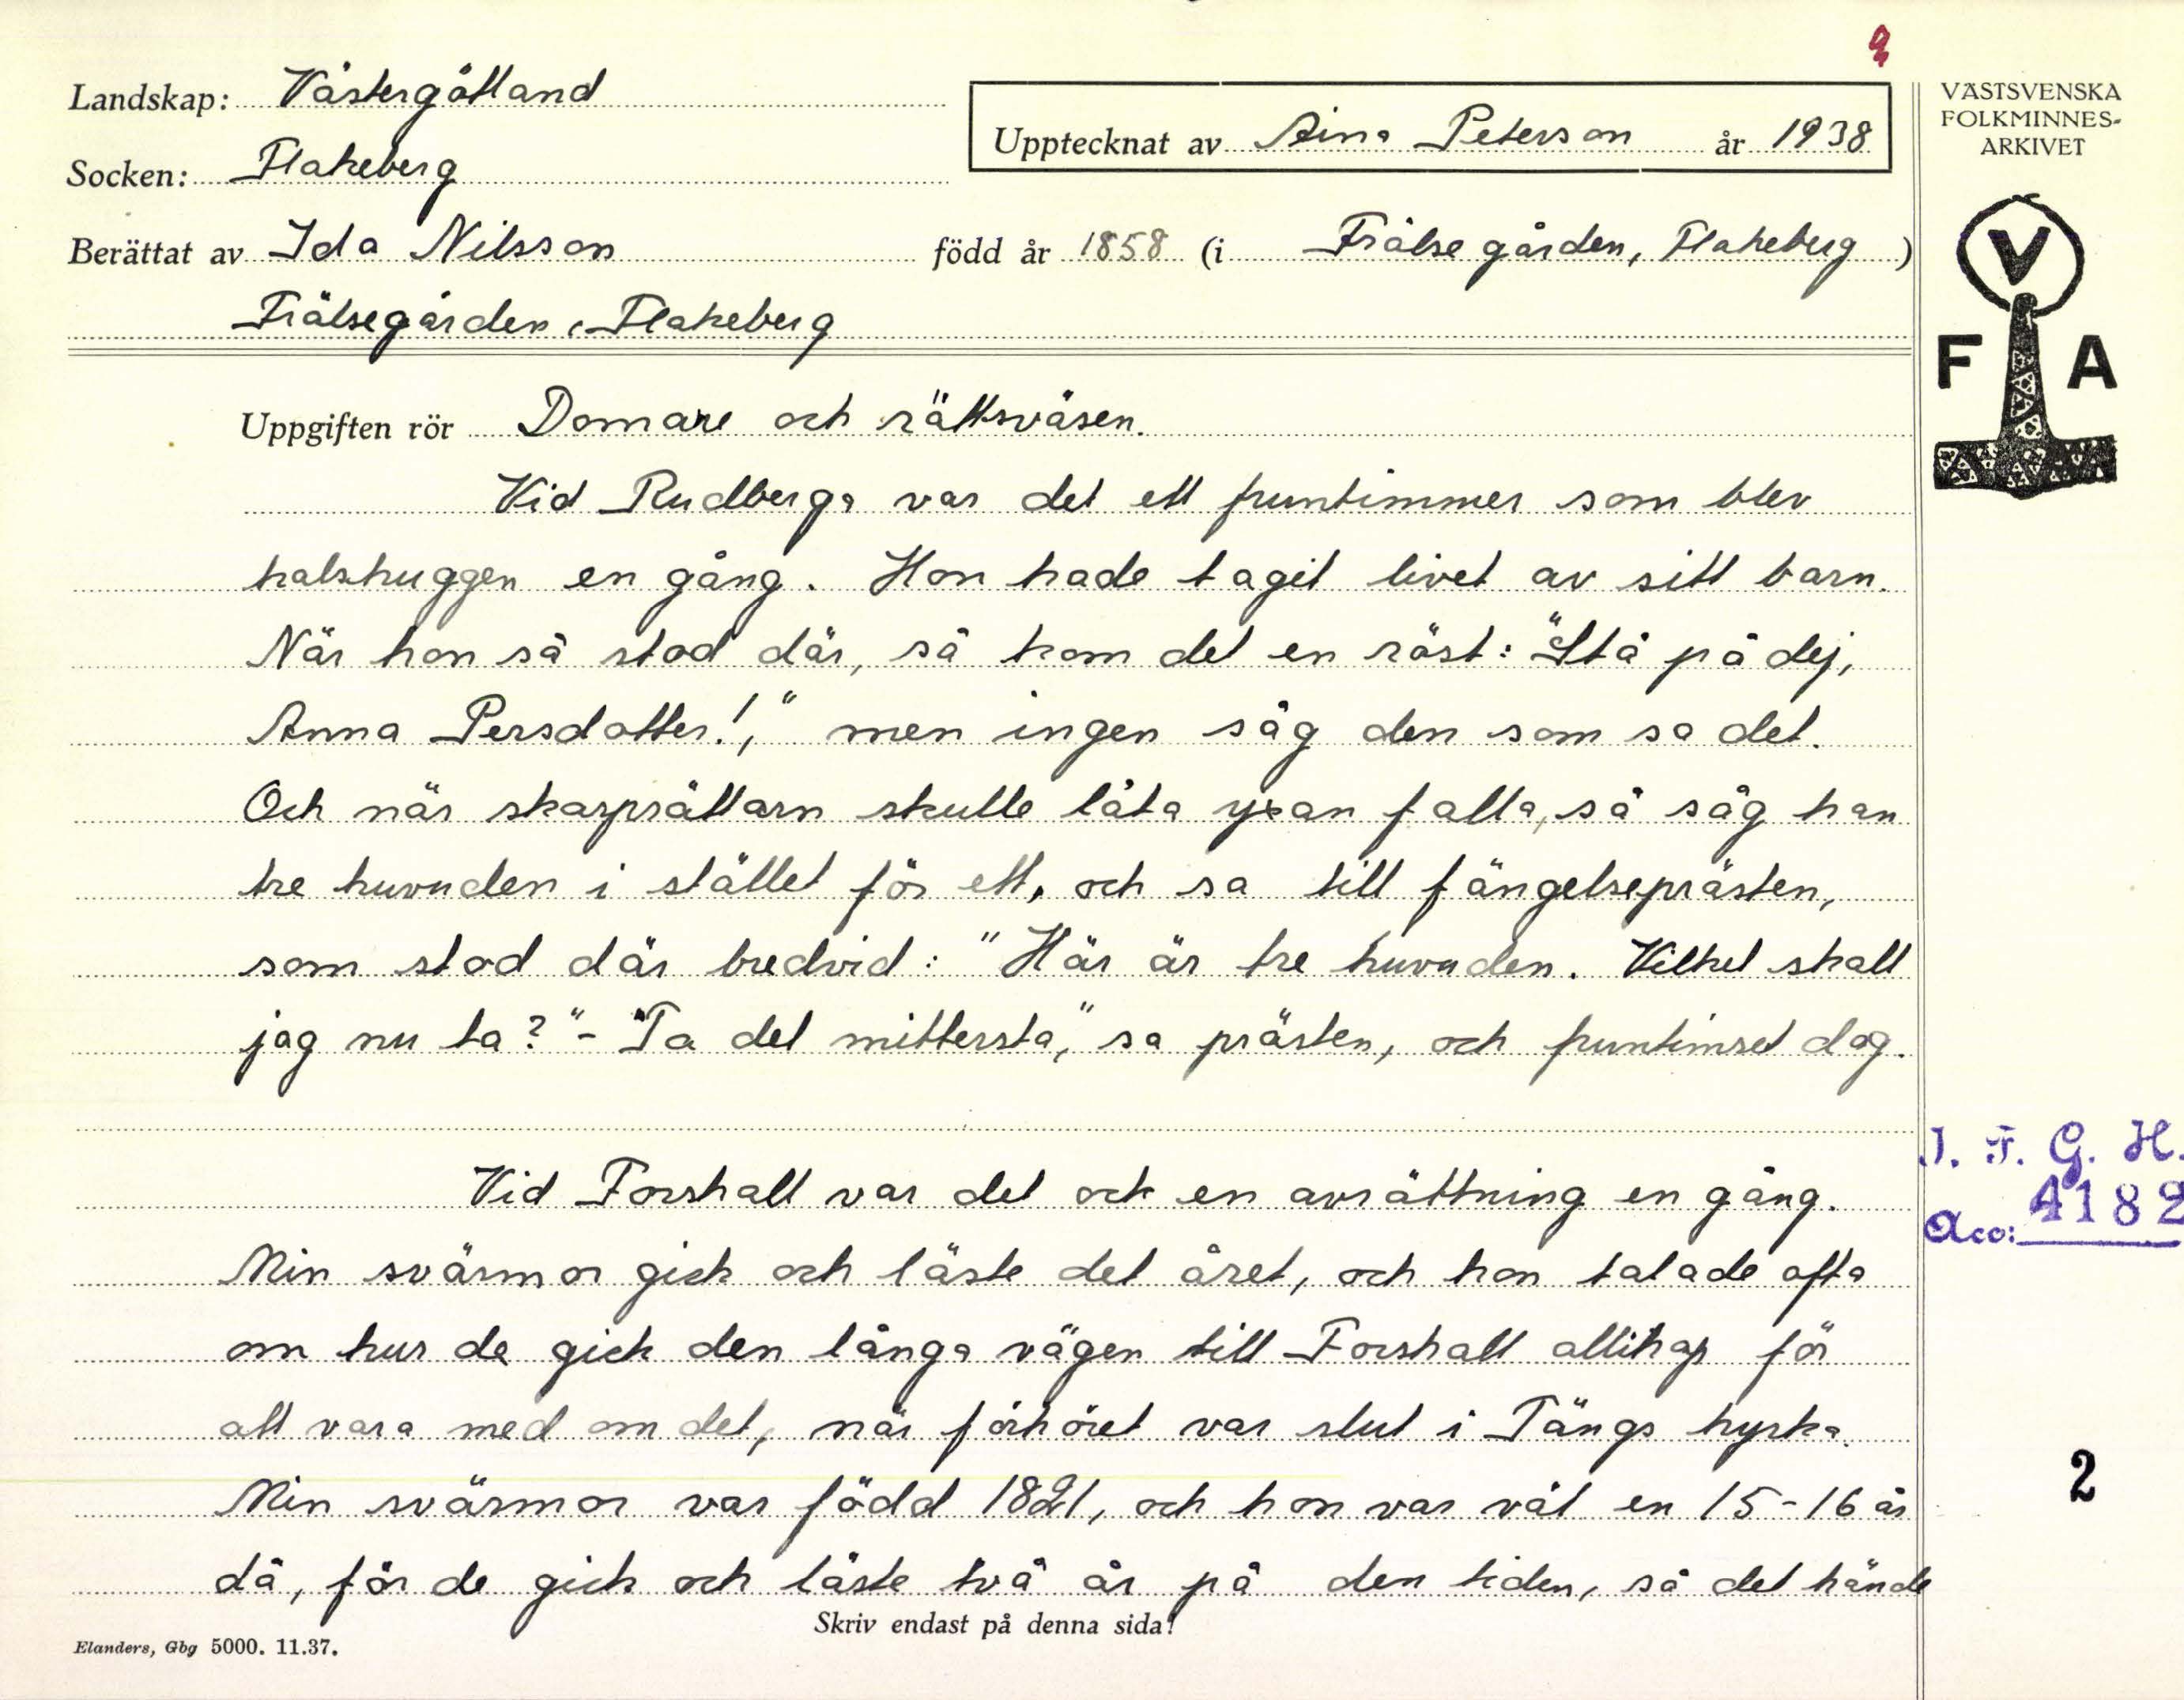 Landskap: Västergötland
Socken: Flakeberg
Upptecknat av Aina Peterson år 1938
Berättat av Ida Nilsson född år 1858 (i Frälsegården, Flakeberg)
Frälsegården, Flakeberg
VÄSTSVENSKA
FOLKMINNES-
ARKIVET
V
F A
Uppgiften rör Domare och rättsväsen.
Vid Rudberga var det ett fruntimmer som blev
halshuggen en gång. Hon hade tagit livet av sitt barn.
När hon så stod där, så kom det en röst: "Stå på dej,
Anna Persdotter!," men ingen såg den som sa det.
Och när skarprättarn skulle låta yxan falla, så såg han
tre huvuden i stället för ett, och sa till fängelseprästen,
som stod där bredvid: "Här är tre huvuden. Vilket skall
jag nu ta?" - "Ta det mittersta," sa prästen, och fruntimret dog.
Vid Forshall var det ock en avrättning en gång.
Min svärmor gick och läste det året, och hon talade ofta
om hur de gick den långa vägen till Forshall allihop för
att vara med om det, när förhöret var slut i Tängs kyrka.
Min svärmor var född 1821, och hon var väl en 15-16 år
då, för de gick och läste två år på den tiden, så det hände
I. F. G. H.
Acc: 4182
2
Skriv endast på denna sida!
Elanders, Gbg 5000. 11.37.